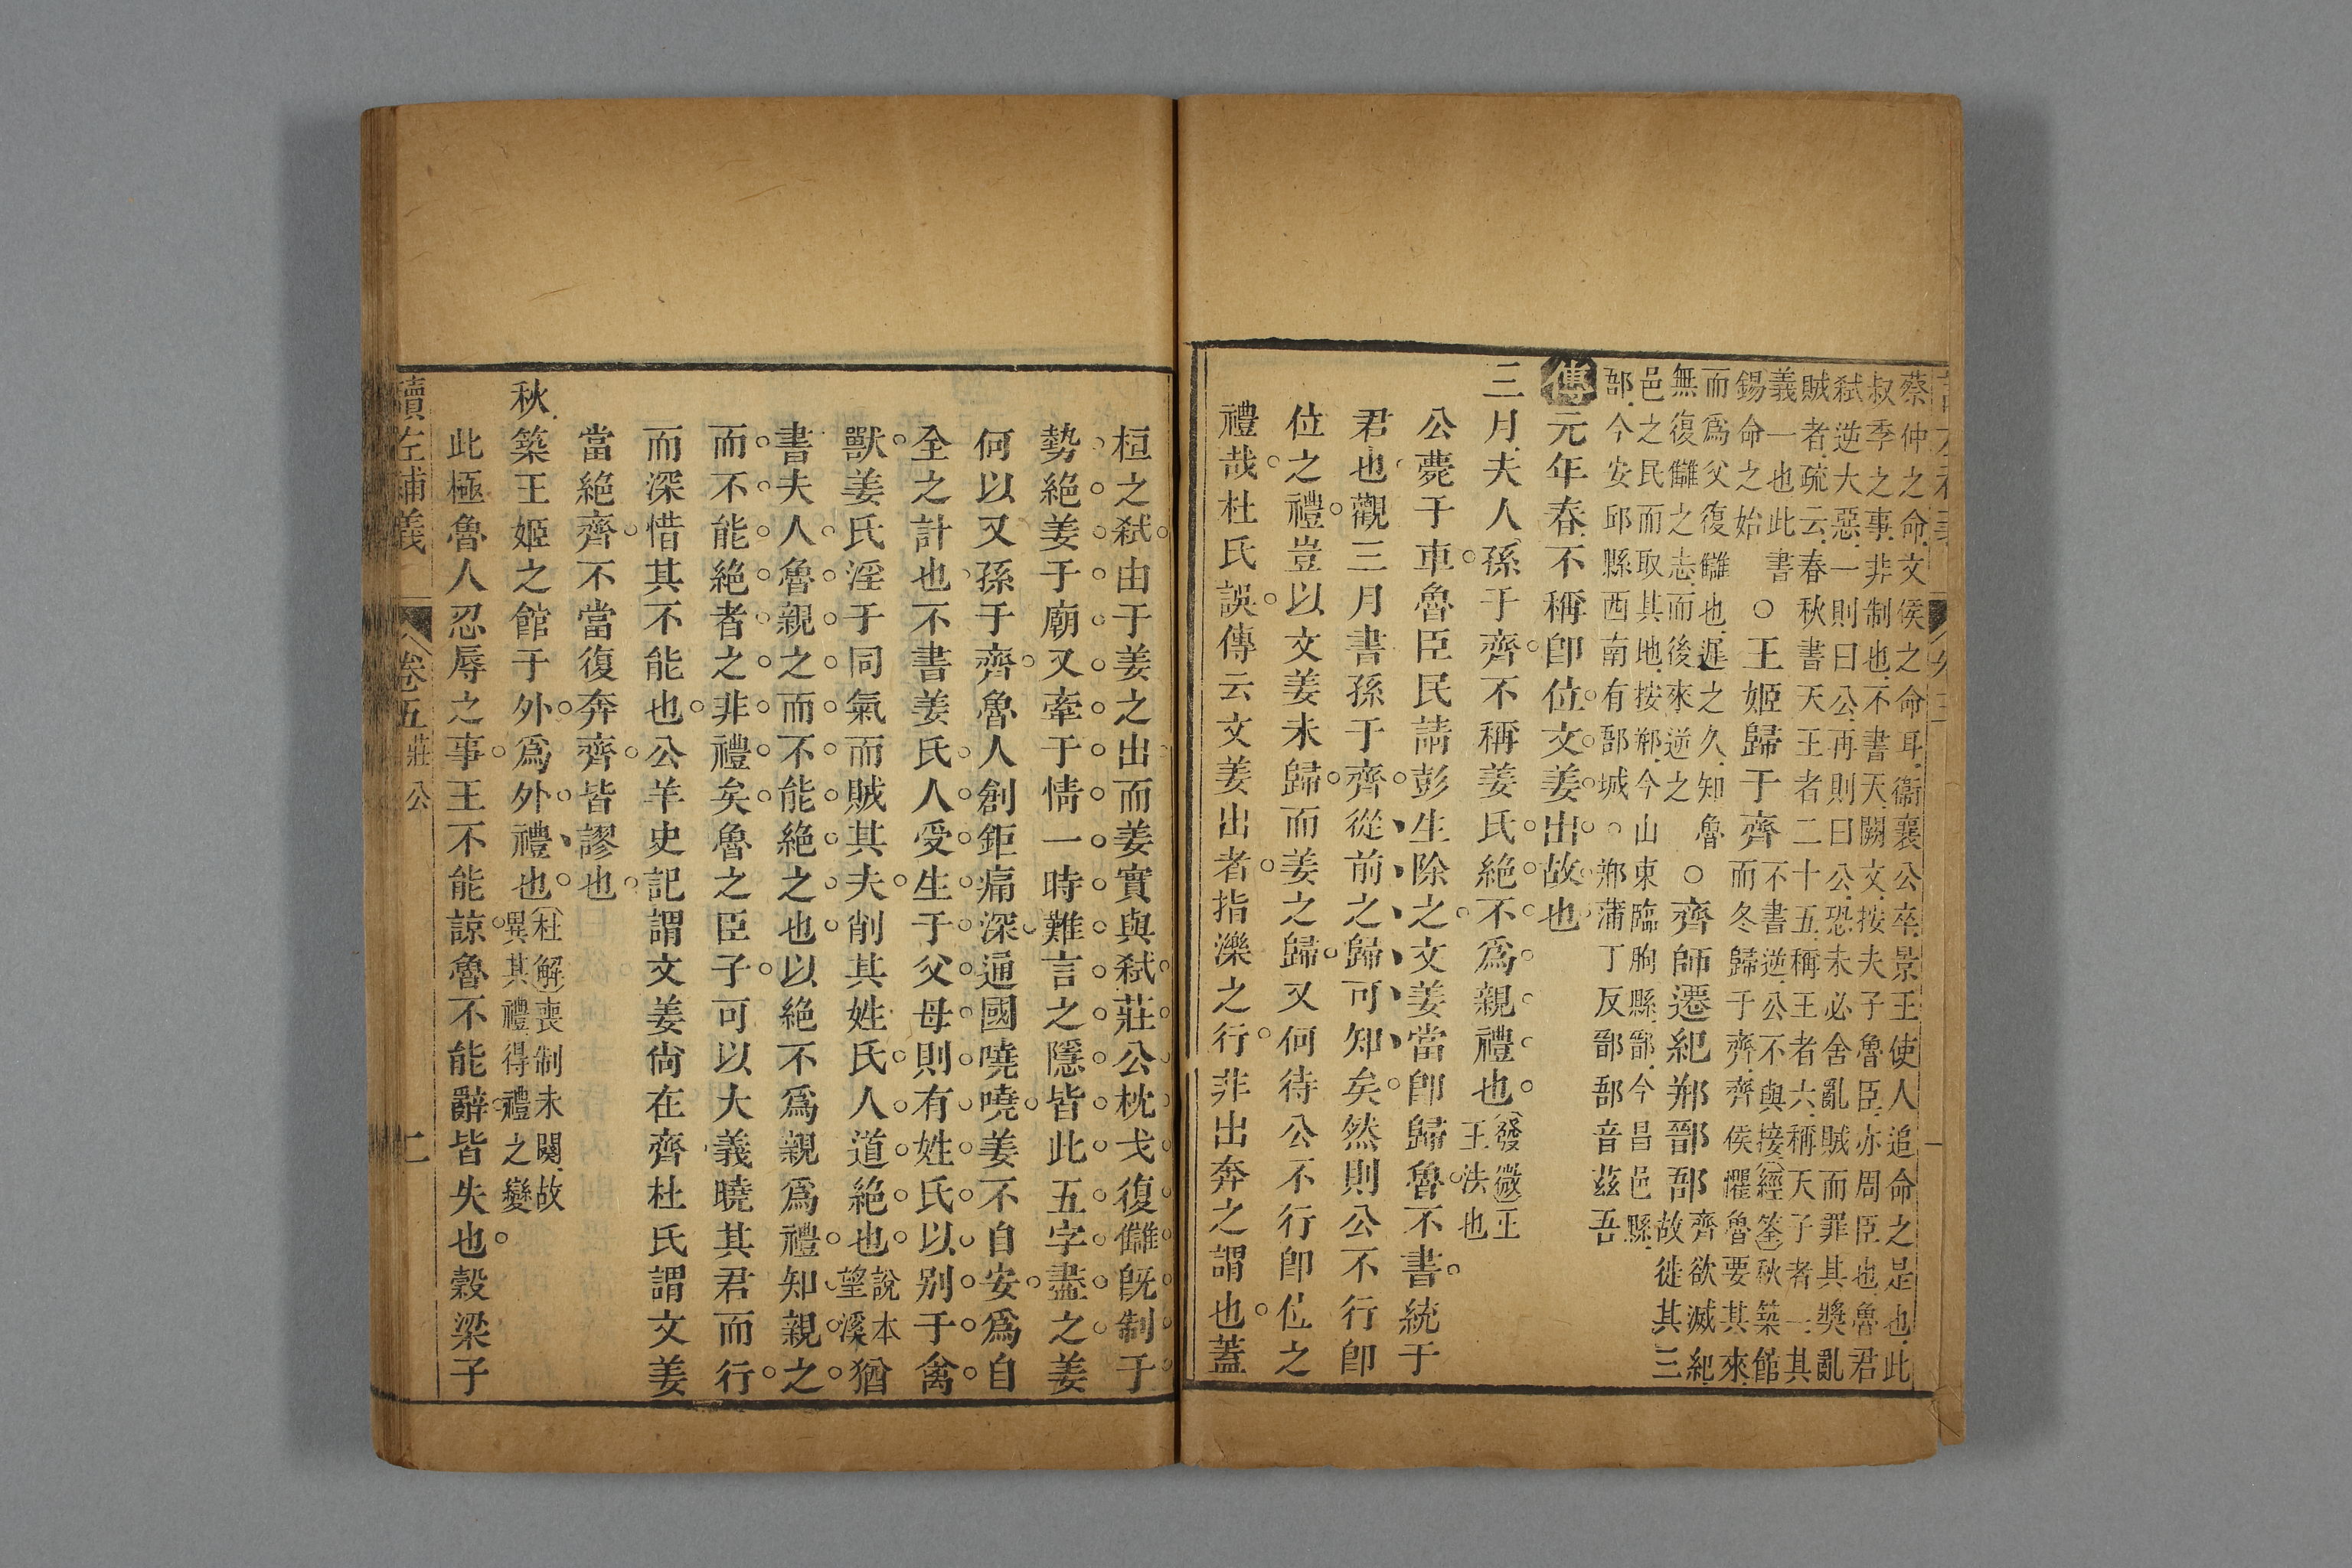 蔡仲之命文侯之命耳衞襄公卒景王使人追命之是也此
叔季之事非制也不書天闕文按夫子魯臣亦周臣也魯君
弑逆大惡一則曰公再則曰公恐未必舍亂賊而罪其奬亂
賊者疏云春秋書天王者二十五稱王者六稱天子者一其
義一也此書
錫命之始
○王姬歸于齊
不書逆公不與接(經筌)秋築館
而冬歸于齊齊侯懼魯要其來
而爲父復讎也遲之久知魯
無復讎之志而後來逆之
○齊師遷紀郱鄑郚
齊欲滅紀
故徙其三
邑之民而取其地按郱今山東臨朐縣鄑今昌邑縣
郚今安邱縣西南有郚城○郱蒲丁反鄑郚音兹吾
傳元年春不稱卽位文姜出故也
三月夫人孫于齊不稱姜氏絶不爲親禮也
(發微)正
王法也
公薨于車魯臣民請彭生除之文姜當卽歸魯不書統于
君也觀三月書孫于齊從前之歸可知矣然則公不行卽
位之禮豈以文姜未歸而姜之歸又何待公不行卽位之
禮哉杜氏誤傳云文姜出者指濼之行非出奔之謂也蓋
桓之弑由于姜之出而姜實與弑莊公枕戈復讎旣制于
勢絶姜于廟又牽于情一時難言之隱皆此五字盡之姜
何以又孫于齊魯人創鉅痛深通國嘵嘵姜不自安爲自
全之計也不書姜氏人受生于父母則有姓氏以别于禽
獸姜氏淫于同氣而賊其夫削其姓氏人道絶也
說本
望溪
猶
書夫人魯親之而不能絶之也以絶不爲親爲禮知親之
而不能絶者之非禮矣魯之臣子可以大義曉其君而行
而深惜其不能也公羊史記謂文姜尙在齊杜氏謂文姜
當絶齊不當復奔齊皆謬也
秋築王姬之館于外爲外禮也
(杜解)喪制未闋故
異其禮得禮之變
此極魯人忍辱之事王不能諒魯不能辭皆失也穀梁子
讀左補義 卷五 莊公 二